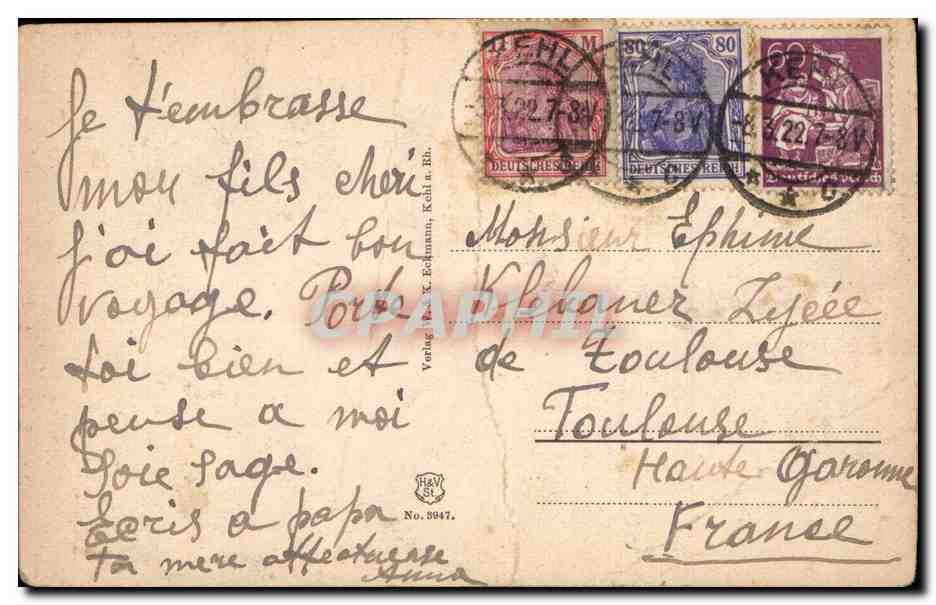 Je t'embrasse
mon fils cheri
j'ai fait bon
voyage. Porte
toi bien et
pense a moi
Soie sage.
Ecris a papa
Ta mere affectueuse
Anna
Verlag W. K. Eckmann, Kehl a. Rh.
H&V
St.
No. 3947.
CPAPHIL
KEHL
22.7-8V
DEUTSCHES REICH
80 80
KEHL
22.7-8V
DEUTSCHES REICH
60
KEHL
-8.3.22.7-8V
Deutsches Reich
Monsieur Ephime
Lycée
de Toulouse
Toulouse
Haute Garonne
France